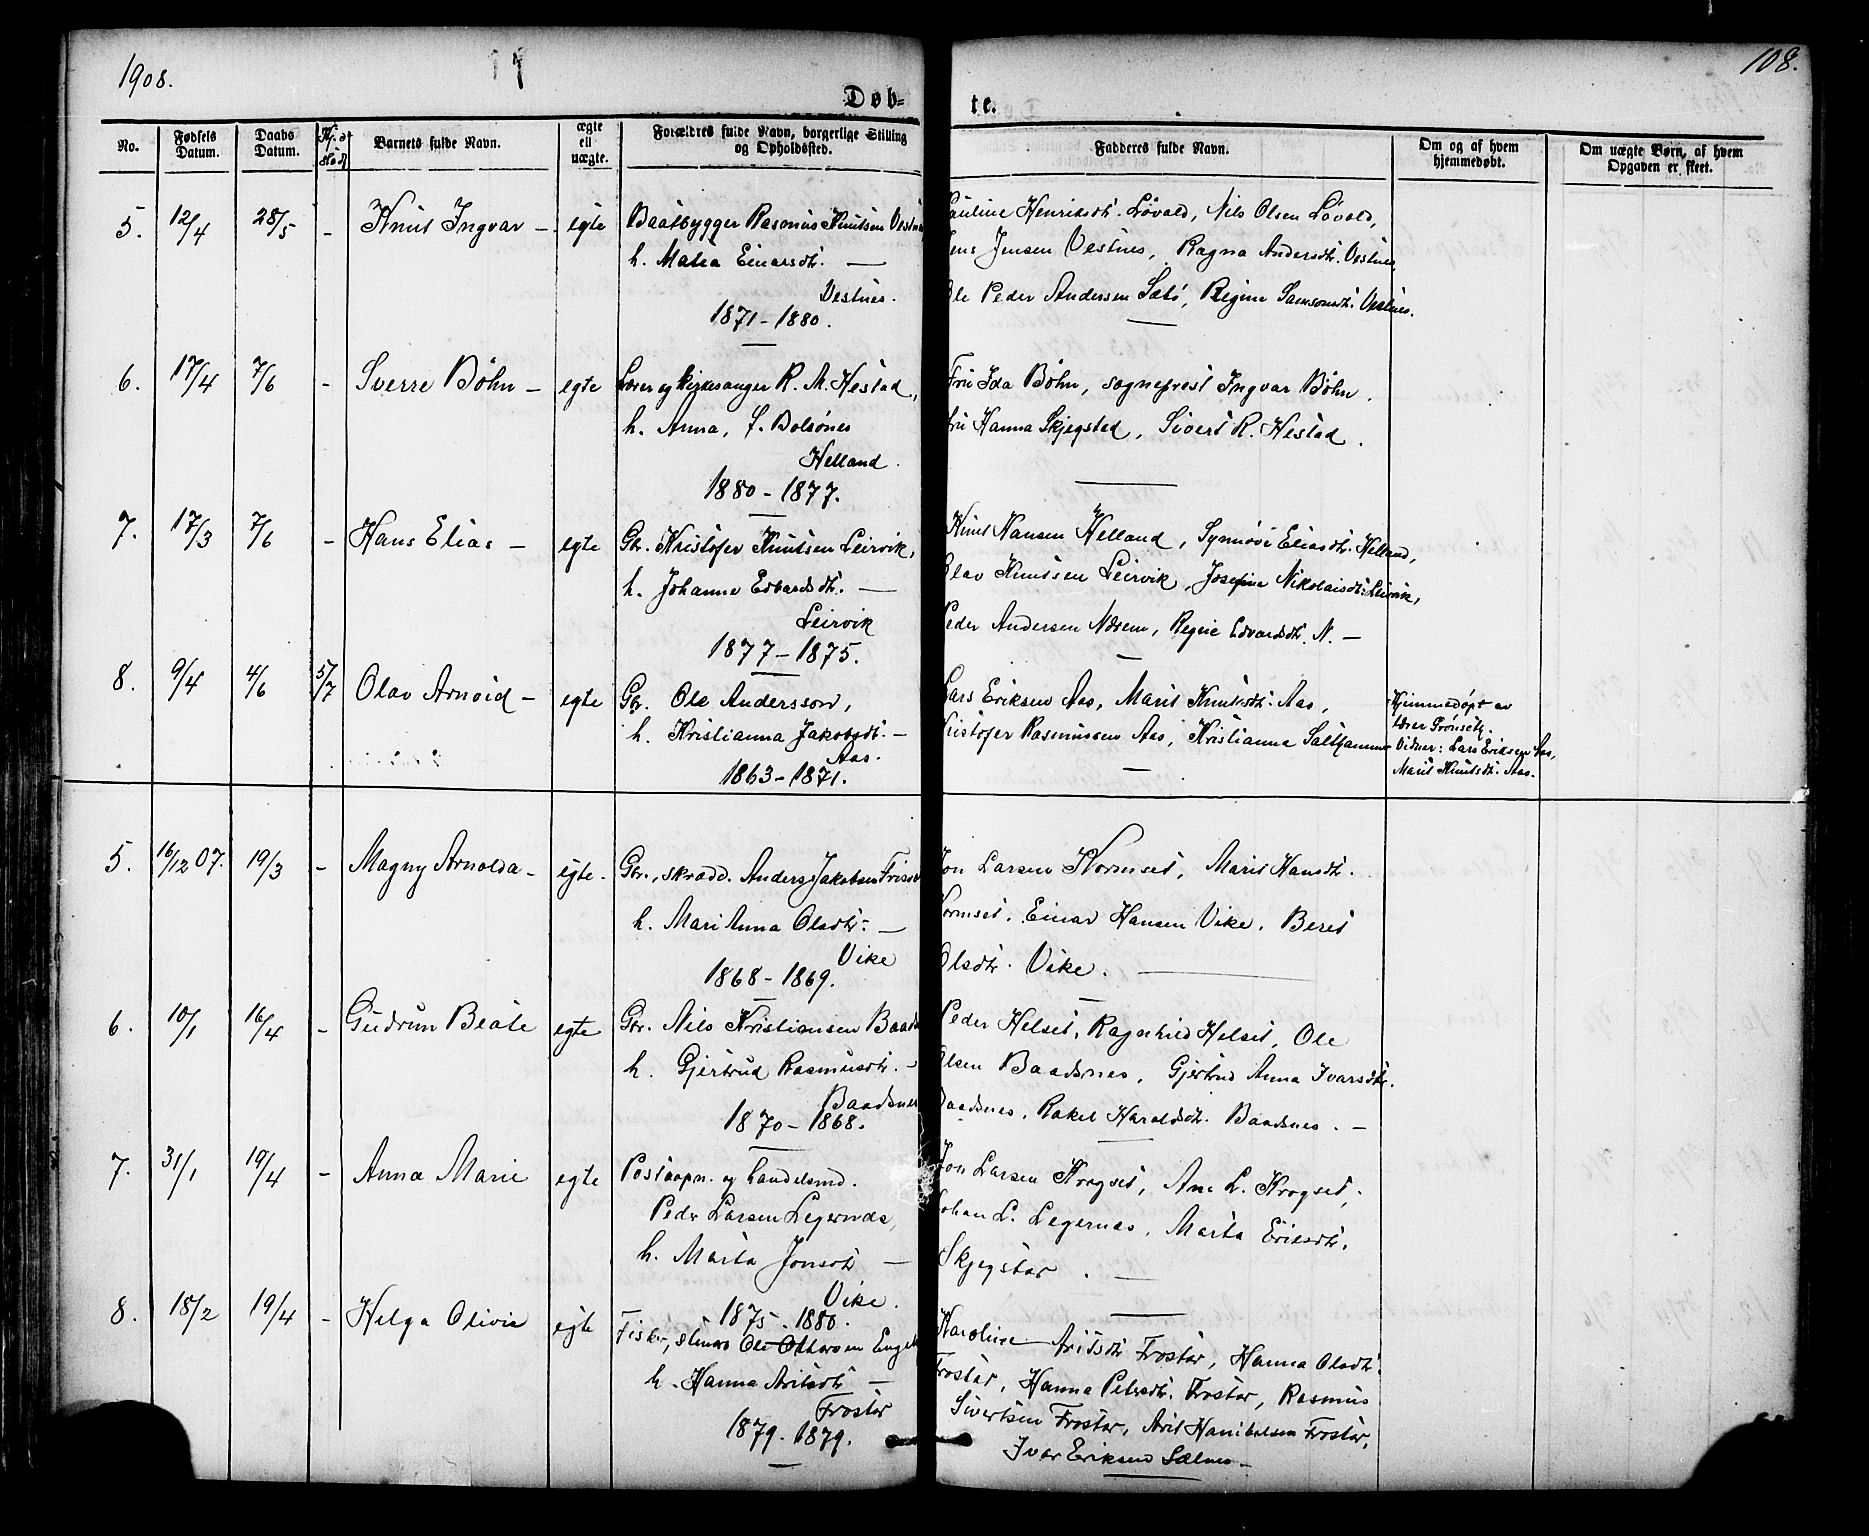 1908.
108.
Døb=
te.
No.
Fødsels Datum.
Daabs Datum.
Barnets fulde Navn.
ægte ell uægte.
Forældres fulde Navn, borgerlige Stilling og Opholdssted.
Fadderes fulde Navn.
Om og af hvem hjemmedøbt.
Om uægte Børn, af hvem Opgaven er skeet.
5. 12/4 28/5 - Knut Ingvar - egte Baatbygger Rasmus Knutsen Vestnes
h. Matea Einarsdt. —
Vestnes.
1871 - 1880.
Pauline Henriksdt. Løvold, Nils Olsen Løvold,
Jens Jensen Vestnes, Ragna Andersdtr. Vestnes,
Ole Peder Andersen Sætò, Regine Samsonsdt. Vestnes.
6. 17/4 7/6 - Sverre Bøhn - egte Lærer og kirkesanger R. M. Hestad,
h. Anna, f. Bolsønes
Helland.
1880 - 1877.
Fru Ida Bøhn, sogneprest Ingvar Bøhn.
Fru Hanna Skjegstad, Sivert R. Hestad.
7. 17/3 7/6 - Hans Elias - egte Gbr. Kristofer Knutsen Leirvik,
h. Johanne Edvardsdt. —
Leirvik
1877 - 1875.
Knut Hansen Helland, Synnøve Eliasdtr. Helland,
Olav Knutsen Leirvik, Josefine Nikolaisdt. Leirvik,
Peder Andersen Næsem, Regine Edvardsdt. N. —
8. 9/4 4/6 5/7 Olav Arnold - egte Gbr. Ole Andersson,
h. Kristianna Jakobsdt. —
Aas.
1863 - 1871.
Lars Eriksen Aas, Marit Knutsdt. Aas,
Kristofer Rasmussen Aas, Kristianna Salthammer
Hjemmedøpt av
lærer Grønseth.
Vidner: Lars Eriksen Aas,
Marit Knutsdt. Aas.
5. 16/12 07. 19/3 - Magny Arnolda - egte. Gbr., skrædd. Anders Jakobsen
h. Mari Anna Olsdtr. —
Vike
1868 - 1869.
Jon Larsen Kormset, Marit Hansdt.
Kormset. Einar Hansen Vike. Beret
Olsdtr. Vike. —
6. 10/1 16/4 - Gudrun Beate egte Gbr. Nils Kristiansen Baadsnes
h. Gjertrud Rasmusdtr. —
Baadsnes
1870 - 1868.
Peder Helset, Ragnhild Helset, Ole
Olsen Baadsnes, Gjertrud Anna Ivarsdtr.
Baadsnes, Rakel Haraldsdt. Baadsnes. —
7. 31/1 19/4 - Anna Marie egte Postaapn. og handelsmd.
Peder Larsen Legernes,
h. Marta Jonsdtr —
Vike.
1875. 1880.
Jon Larsen Krogset, Ane L. Krogset,
Johan L. Legernes, Marta Eriksdtr.
Skjegstar. —
8. 18/2 19/4 - Helga Olivie egte Fisker, Ole Ottersen
h. Hanna Aritsdtr —
Frostar
1879. 1879.
Karoline Aritsdtr Frostar, Hanna Olsdtr.
Frostar, Hanna Petersdtr. Frostar, Rasmus
Sivertsen Frostar, Arit Hanibalsen Frostar,
Ivar Eriksen Sælnes —